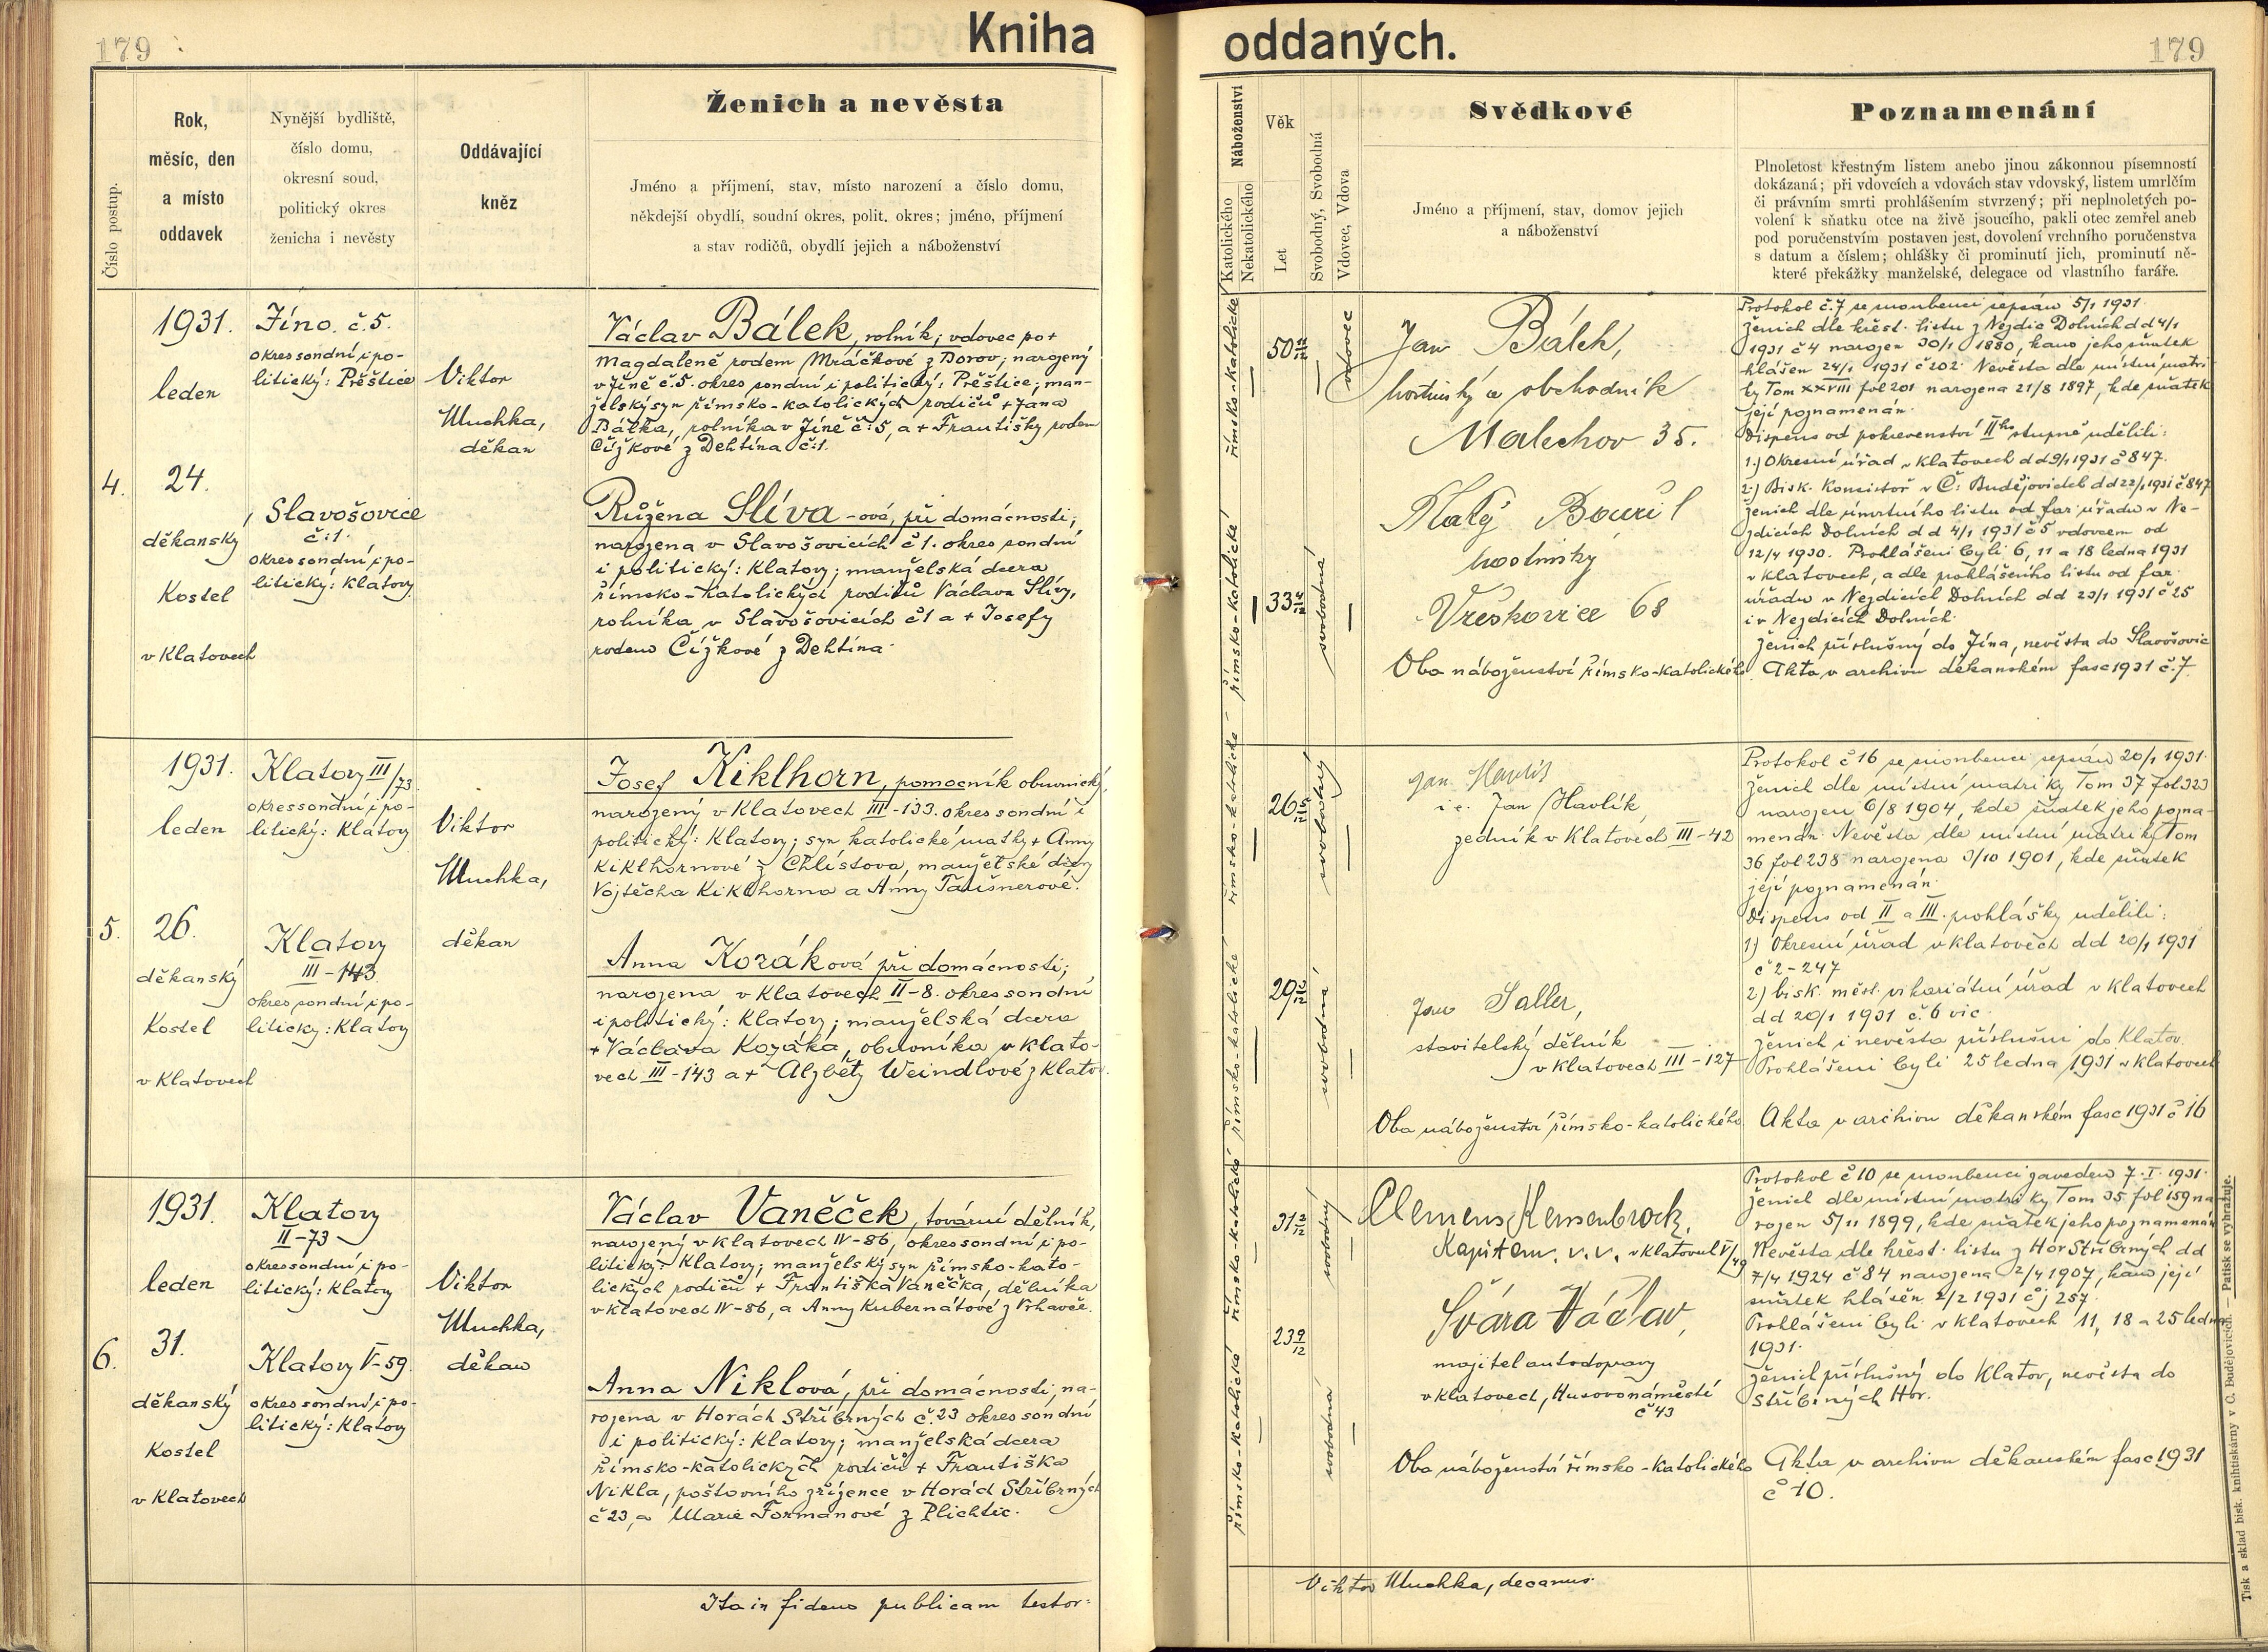 179
Kniha
Číslo postup.
Rok,
měsíc, den
a místo
oddavek
Nynější bydliště,
číslo domu,
okresní soud,
politický okres
ženicha i nevěsty
Oddávající
kněz
Ženich a nevěsta
Jméno a příjmení, stav, místo narození a číslo domu,
někdejší obydlí, soudní okres, polit. okres; jméno, příjmení
a stav rodičů, obydlí jejich a náboženství
4.
1931.
leden
24.
děkanský
Kostel
v Klatovech
Jíno. č.5.
okres soudní i po-
litický: Přeštice
Slavošovice
č.1.
okres soudní i po-
litický: Klatovy
Viktor
Muchka,
děkan
Václav Bálek, rolník; vdovec po +
Magdaleně rodem Mráčkové z Borov; narozený
v Jíně č.5. okres soudní i politický: Přeštice; man-
želský syn římsko-katolických rodičů + Jana
Bálka, rolníka v Jíně č.5, a + Františky rodem
Čížkové z Dehtína č.1.
Růžena Slíva-ová, při domácnosti;
narozena v Slavošovicích č 1. okres soudní
i politický: Klatovy; manželská dcera
římsko-katolických rodičů Václava Slívy,
rolníka v Slavošovicích č1 a + Josefy
rodem Čížkové z Dehtína.
5.
1931.
leden
26.
děkanský
Kostel
v Klatovech
Klatovy III/73
okres soudní i po-
litický: Klatovy
Klatovy
III-143
okres soudní i po-
litický: Klatovy
Viktor
Muchka,
děkan
Josef Kiklhorn, pomocník obuvnický,
narozený v Klatovech III-133. okres soudní i
politický: Klatovy; syn katolické matky + Anny
Kiklhornové z Chlístova, manželské dcery
Vojtěcha Kiklhorna a Anny Taušnerové.
Anna Kozáková při domácnosti;
narozena v Klatovech II-8. okres soudní
i politický: Klatovy; manželská dcera
+ Václava Kozáka, obuvníka v Klato-
vech III-143 a + Alžběty Weindlové z Klatov.
6.
1931.
leden
31.
děkanský
Kostel
v Klatovech
Klatovy
II-73
okres soudní i po-
litický: Klatovy
Klatovy V-59.
okres soudní i po-
litický: Klatovy
Viktor
Muchka,
děkan
Václav Vaněček, tovární dělník,
narozený v Klatovech IV-86, okres soudní i po-
litický: Klatovy; manželský syn římsko-kato-
lických rodičů + Františka Vaněčka, dělníka
v Klatovech IV-86, a Anny Kubernátové z Vrhavče.
Anna Niklová, při domácnosti, na-
rozena v Horách Stříbrných č.23 okres soudní
i politický: Klatovy; manželská dcera
římsko-katolických rodičů + Františka
Nikla, poštovního zřízence v Horách Stříbrných
č 23, a Marie Formanové z Plichtic.
Ita in fidem publicam testor:
oddaných.
179
Náboženství
Katolického
Nekatolického
Věk
Let
Svobodný, Svobodná
Vdovec, Vdova
Svědkové
Jméno a příjmení, stav, domov jejich
a náboženství
Poznamenání
Plnoletost křestným listem anebo jinou zákonnou písemností
dokázaná; při vdovcích a vdovách stav vdovský, listem umrlčím
či právním smrti prohlášením stvrzený; při neplnoletých po-
volení k sňatku otce na živě jsoucího, pakli otec zemřel aneb
pod poručenstvím postaven jest, dovolení vrchního poručenstva
s datum a číslem; ohlášky či prominutí jich, prominutí ně-
které překážky manželské, delegace od vlastního faráře.
římsko-katolické
50
vdovec
římsko-katolické
33
svobodná
Jan Bálek,
hostinský a obchodník
Malechov 35.
Bouřil
hostinský
Vřeskovice 68
Oba náboženství římsko-katolického
Protokol č.7 se snoubenci sepsán 5/1 1931.
Ženich dle křest. listu z Nezdic Dolních d d 4/1
1931 č 4 narozen 30/1 1880, kamž jeho sňatek
hlášen 24/1 1931 č 202. Nevěsta dle místní matri
ky Tom XXVIII fol 201 narozena 21/8 1897, kde sňatek
její poznamenán.
Dispens od pokrevenství II stupně udělili:
1.) Okresní úřad v Klatovech d d 9/1 1931 č 847.
2.) Bisk. Konsistoř v Č. Budějovicích d d 22/1 1931 č 847
Ženich dle úmrtního listu od far. úřadu v Ne-
zdicích Dolních d d 4/1 1931 č 5 vdovcem od
12/4 1930. Prohlášeni byli 6, 11 a 18 ledna 1931
v Klatovech, a dle prohlášeního listu od far.
úřadu v Nezdicích Dolních d d 23/1 1931 č 25
i v Nezdicích Dolních.
Ženich příslušný do Jína, nevěsta do Slavošovic
Akta v archivu děkanském fasc 1931 č.7.
římsko-katolické
26
svobodný
římsko-katolické
29
svobodná
Jan Havlík
i.e. Jan Havlík,
zedník v Klatovech III-42
Jan Saller,
stavitelský dělník
v Klatovech III-127
Oba náboženství římsko-katolického
Protokol č 16 se snoubenci sepsán 20/1 1931.
Ženich dle místní matriky Tom 37 fol 323
narozen 6/8 1904, kde sňatek jeho pozna-
menán. Nevěsta dle místní matriky Tom
36 fol 238 narozena 3/10 1901, kde sňatek
její poznamenán.
Dispens od II a III. prohlášky udělili:
1) Okresní úřad v Klatovech d d 20/1 1931
č 2-247
2) bisk. měst. vikariátní úřad v Klatovech
d d 20/1 1931 č. 6 vic.
Ženich i nevěsta příslušni do Klatov.
Prohlášeni byli 25 ledna 1931 v Klatovech
Akta v archivu děkanském fasc 1931 č 16
římsko-katolické
31 2/12
svobodný
římsko-katolické
23 9/12
svobodná
Clemens Kemenbrock,
Kapitem. v. v. v Klatovech V/49
Švára Václav,
majitel autodopravy
v Klatovech, Husovo náměstí
č 43
Oba náboženství římsko-katolického
Protokol č 10 se snoubenci zaveden 7. I. 1931.
Ženich dle místní matriky Tom 35 fol 159 na-
rozen 5/11 1899, kde sňatek jeho poznamenán
Nevěsta dle křest. listu z Hor Stříbrných d d
7/4 1924 č 84 narozena 2/4 1907, kamž její
sňatek hlášen 2/2 1931 čj 257.
Prohlášeni byli v Klatovech 11, 18 a 25 ledna
1931.
Ženich příslušný do Klatov, nevěsta do
Stříbrných Hor.
Akta v archivu děkanském fasc 1931
č 10.
Viktor Muchka, decanus.
Tisk a sklad bisk. knihtiskárny v Č. Budějovicích. — Patisk se vyhražuje.